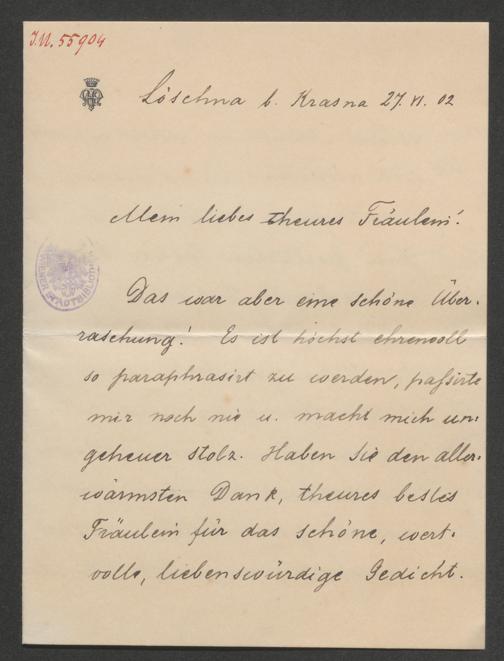 I.N. 55904
Löschna b. Krasna 27. VI. 02
Mein liebes theures Fräulein!
WIENER STADTBIBLIOTHEK
Das war aber eine schöne Über-
raschung! Es ist höchst ehrenvoll
so paraphrasirt zu werden, paßirte
mir noch nie u. macht mich un-
geheuer stolz. Haben Sie den aller-
wärmsten Dank, theures bestes
Fräulein für das schöne, wert-
volle, liebenswürdige Gedicht.